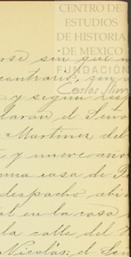 CENTRO DE
ESTUDIOS
DE HISTORIA
DE MEXICO
FUNDACIÓN
Carlos Slim
rse sin que
contrario, sin
y segun
laran el Seño
Martinez del
y nueve
una casa de
despacho
al en la casa
la calle del
Nicolás; el Señ